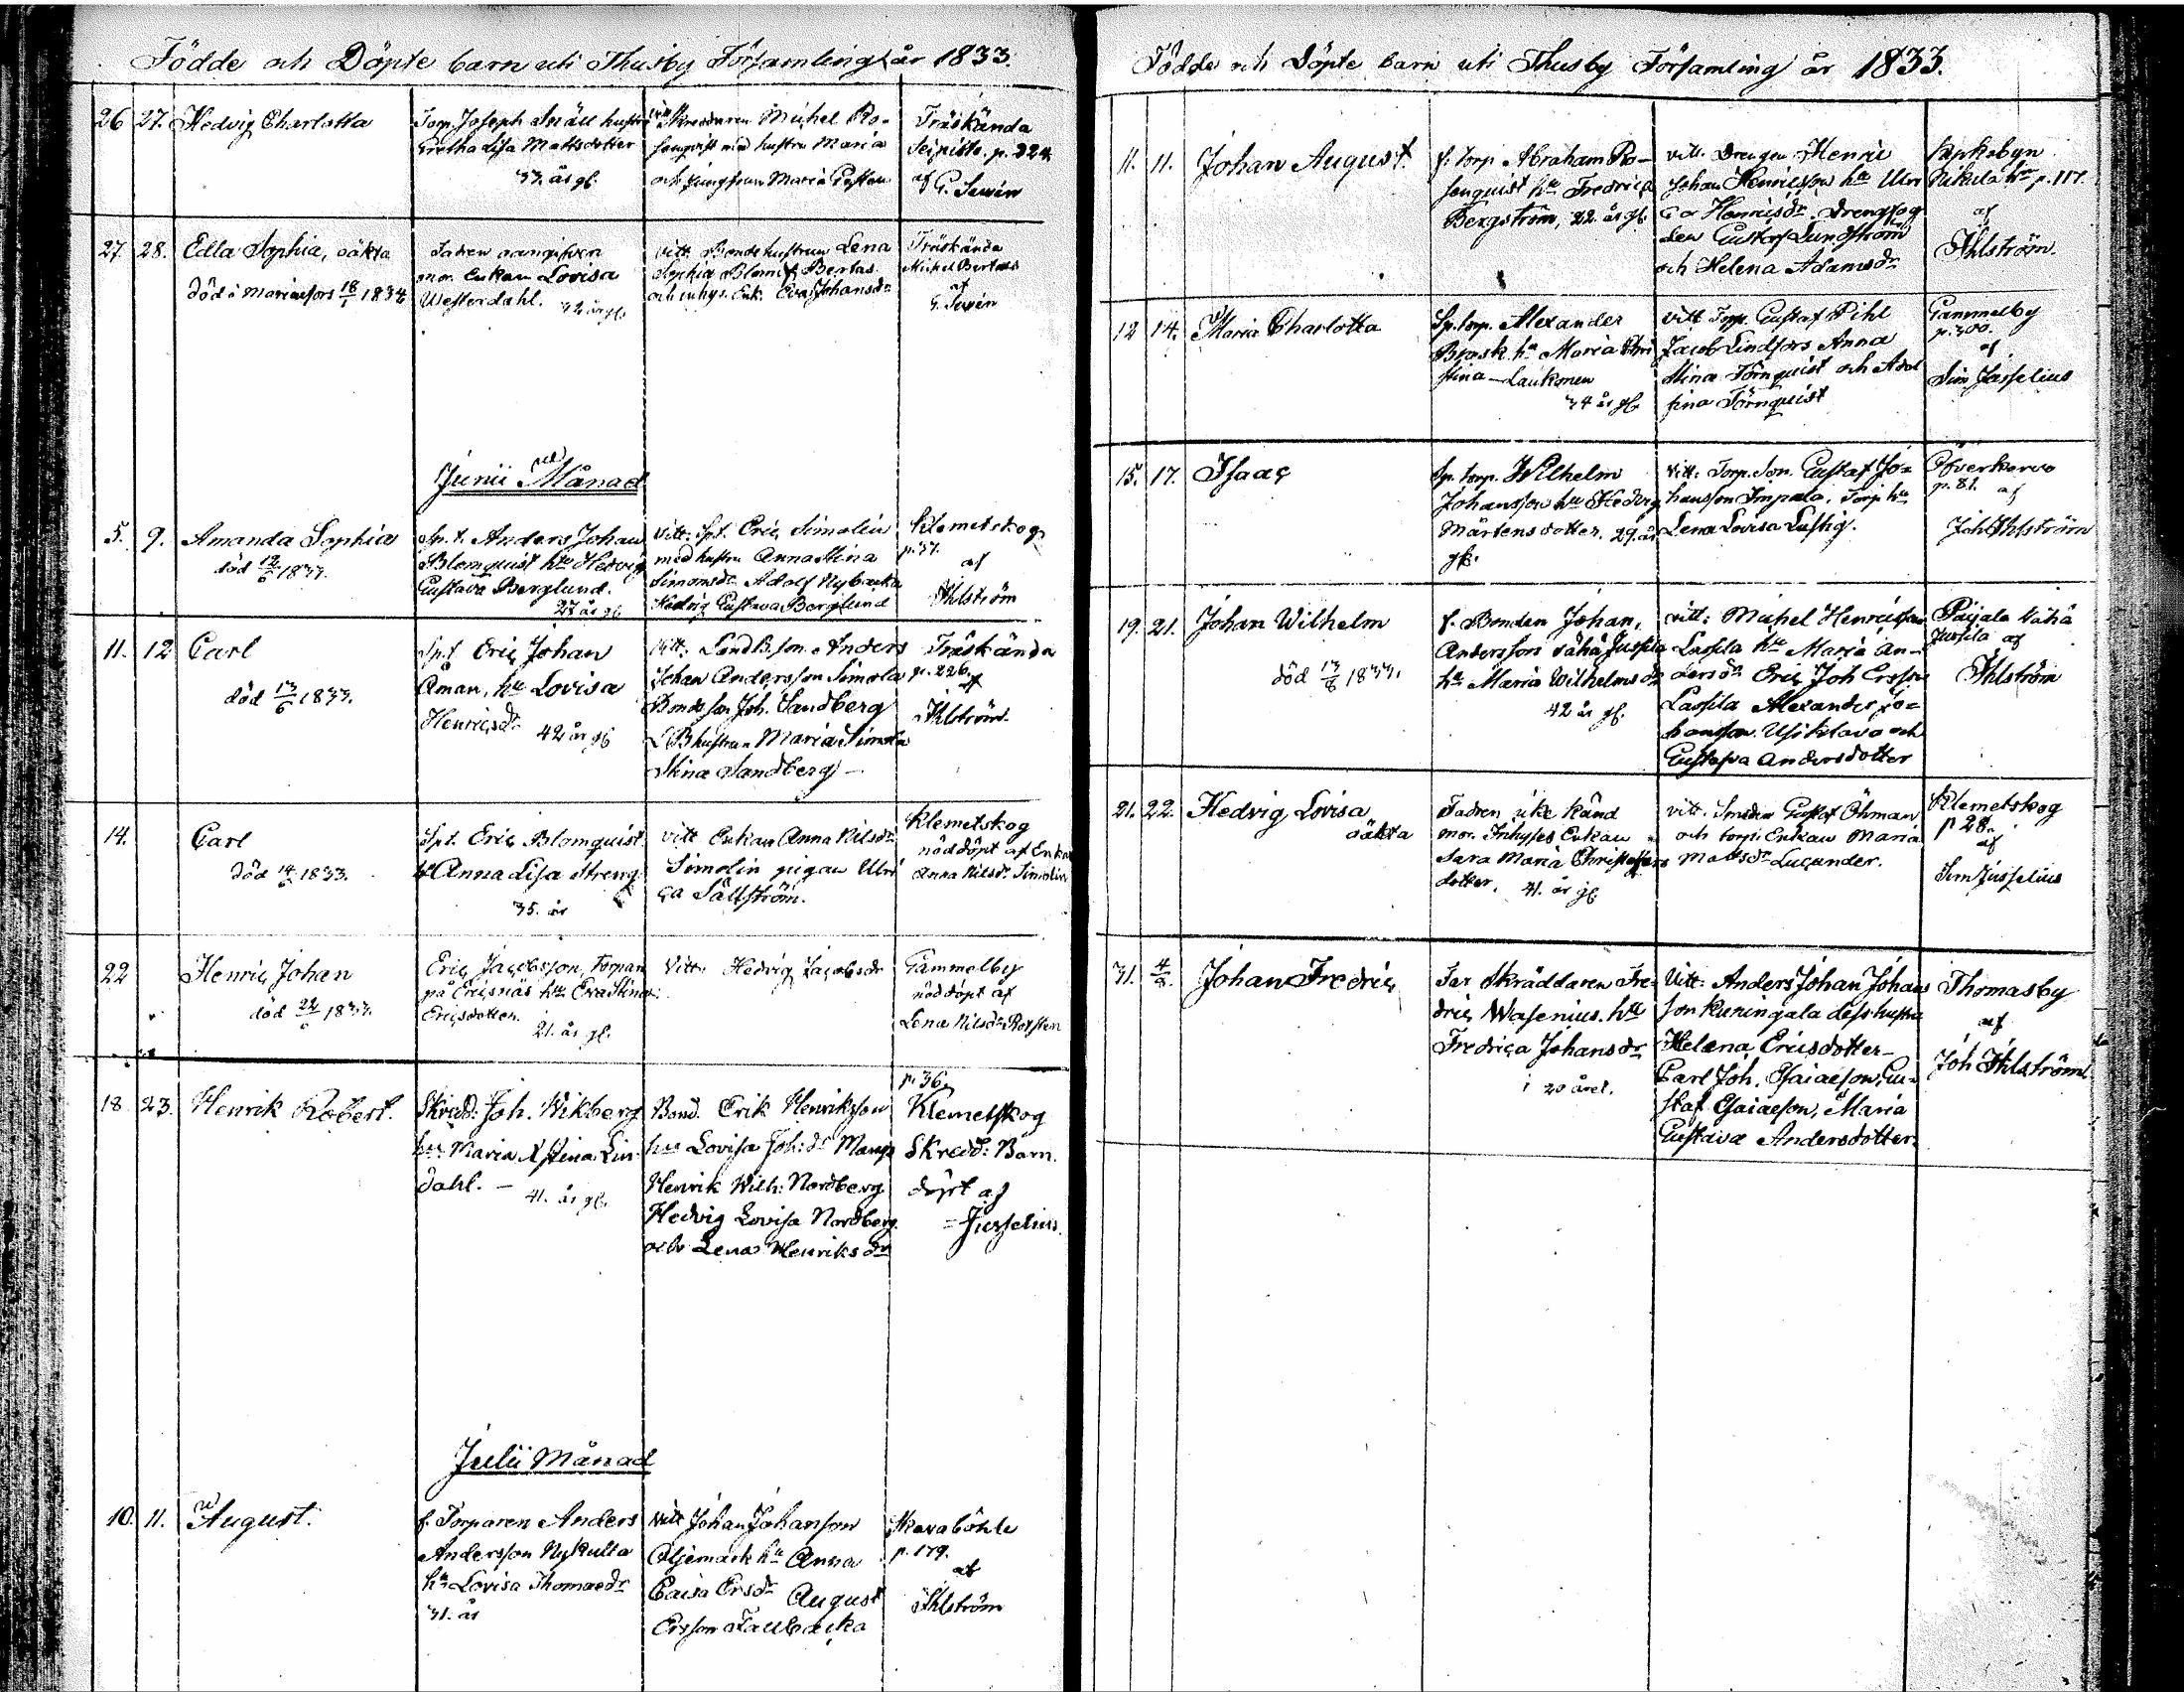 Födde och Döpte barn uti Thusby Församling år 1833.
26 27. Hedvig Charlotta
Torp. Joseph Snäll hustru
Gretha Lisa Mattsdotter
33. år gl.
Skreddaren Michel Ro-
senqvist med hustru Maria
och jungfrun Maria
Träskända
Seipilä. p. 224.
af G. Sevin
27. 28. Edla Sophia, oäkta
död i Mariaefors 18/1 1834
Fadren oangifven
mor. Enkan Lovisa
Westerdahl. 42 år gl.
vitt. Bondehustrun Lena
Sophia Blomqt Bertas.
och inhys. Enk. Eva Johansdr
Träskända
Michel Bertas
af
G. Sevin
Junii Månad
5. 9. Amanda Sophia
död 12/6 1833.
Sp. t. Anders Johan
Blomquist hu Hedvig
Gustava Berglund.
27 år gl.
vitt: Spt. Eric Simolin
med hustru Anna Stina
Simonsdr Adolf Nybacka
Hedvig Gustava Berglund
Klemetskog
p. 37.
af
Ahlström
11. 12 Carl
död 13/6 1833.
Spt Eric Johan
Åman, hu Lovisa
Henricsdr 42 år gl
Vitt: LandB. son. Anders
Johan Andersson Simola
Bonde son Joh. Sandberg
LB hustrun Maria Simola
Stina Sandberg —
Träskända
p. 226.
af
Ahlström.
14. Carl
död 14/6 1833.
Spt. Eric Blomquist
hu Anna Lisa Streng
35. år
vitt Enkan Anna Nilsdr
Simolin pigan Ulri
ca Sällström.
Klemetskog
nöddöpt af Enkan
Anna Nilsdr Simolin
22 Henric Johan
död 24/6 1833.
Eric Jacobsson, Torpare
på Ericsnäs hu Eva Stina
Ericsdotter.
21. år gl.
Vitt: Hedvig Jacobsdr
Gammelby
nöddöpt af
Lena Nilsdr
18. 23. Henrik Robert.
Skredd: Joh. Wikberg
hu Maria Stina Lin-
dahl. — 41. år gl.
Bond. Erik Henriksson
hu Lovisa Joh:dr
Henrik Wilh: Nordberg
Hedvig Lovisa Nordberg
och Lena Henriksdr
p. 36.
Klemetskog
Skredd: Barn.
döpt af
= Jusselius.
Julii Månad
10. 11. August.
f. Torparen Anders
Andersson Nykulla
hu Lovisa Thomasdr
31. år
vitt Johan Johanson
Oljemark hu Anna
Caisa Ersdr August
Ersson Tallbacka
Skavaböhle
p. 179.
af
Ahlström
Födde och Döpte barn uti Thusby Församling år 1833.
11. 11. Johan August.
f. torp Abraham Ro-
senquist hu Fredrica
Bergström, 22. år gl.
vitt. Drengen Henric
Johan Henricsson hu Ulri
ca Henricsdr. Dreng
den Gustaf Lundström
och Helena Adamsdr
Kyrkobyn
p. 117.
af
Ahlström.
12 14. Maria Charlotta
Sp. torp. Alexander
Brask hu Maria Chri
stina Laukonen
34 år gl.
vitt Torp. Gustaf Pihl
Jacob Lindfors Anna
Stina Törnquist och Adol
fina Törnquist
Gammelby
p. 300.
af
Sim Jusselius
15. 17. Isaac
Sp. torp. Wilhelm
Johansson hu Hedvig
Mårtensdotter. 29. år
gl.
Vitt: Torp. Son. Gustaf Jo-
hansson Impala, Torp. hu
Lena Lovisa Lustig.
Öfverkervo
p. 81. af
Joh Ahlström
19. 21. Johan Wilhelm
död 13/8 1833.
f. Bonden Johan,
Andersson Vähä Jussila
hu Maria Wilhelmsdr
42 år gl.
vitt: Michel Henricsson
Lassila hu Maria An-
dersdr Eric Joh Ersson
Lassila Alexander Jo-
hansson Usiklavo och
Gustava Andersdotter
Paijala Vähä
Jussila af
Ahlström
21. 22. Hedvig Lovisa
oäkta
Fadren icke känd
mor. Inhyses Enkan
Sara Maria Christoffers
dotter, 41. år gl.
vitt. Smeden Gustaf Öhman
och torp. Enkan Maria
Mattsdr Lucander.
Klemetskog
p 28.
af
Sim Jusselius
31. 4/8. Johan Fredric
Far Skräddaren Fre-
dric Wasenius. hu
Fredrica Johansdr
i 20 året.
Vitt: Anders Johan Johans
son Kuningala dess hustru
Helena Ericsdotter—
Carl Joh. Esaiaeson, Gu-
staf Esaiaeson, Maria
Gustava Andersdotter.
Thomasby
af
Joh Ahlström.